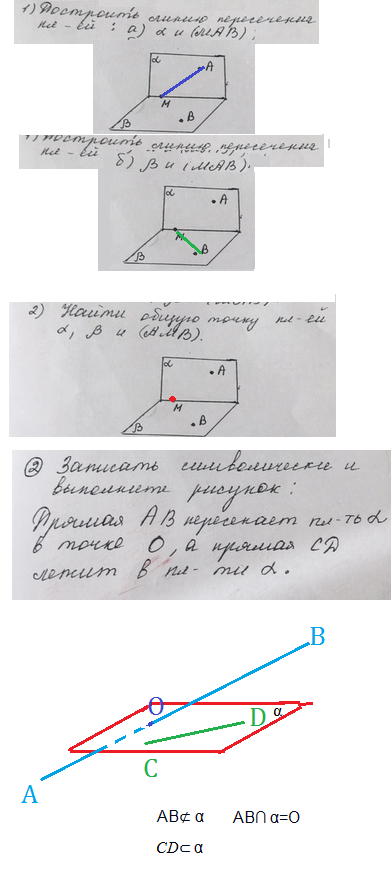 1) Построить линию пересечения
пл-ей : а) α и (МАВ);
α
А
М
β
В
1) Построить линию пересечения
пл-ей б) β и (МАВ).
α
А
М
В
β
2) Найти общую точку пл-ей
α, β и (АМВ).
α
А
М
В
β
② Записать символически и
выполните рисунок:
Прямая АВ пересекает пл-ть α
в точке О, а прямая СD
лежит в пл-ти α.
B
O
D
α
C
A
AB⊄ α AB∩ α=O
CD⊂ α